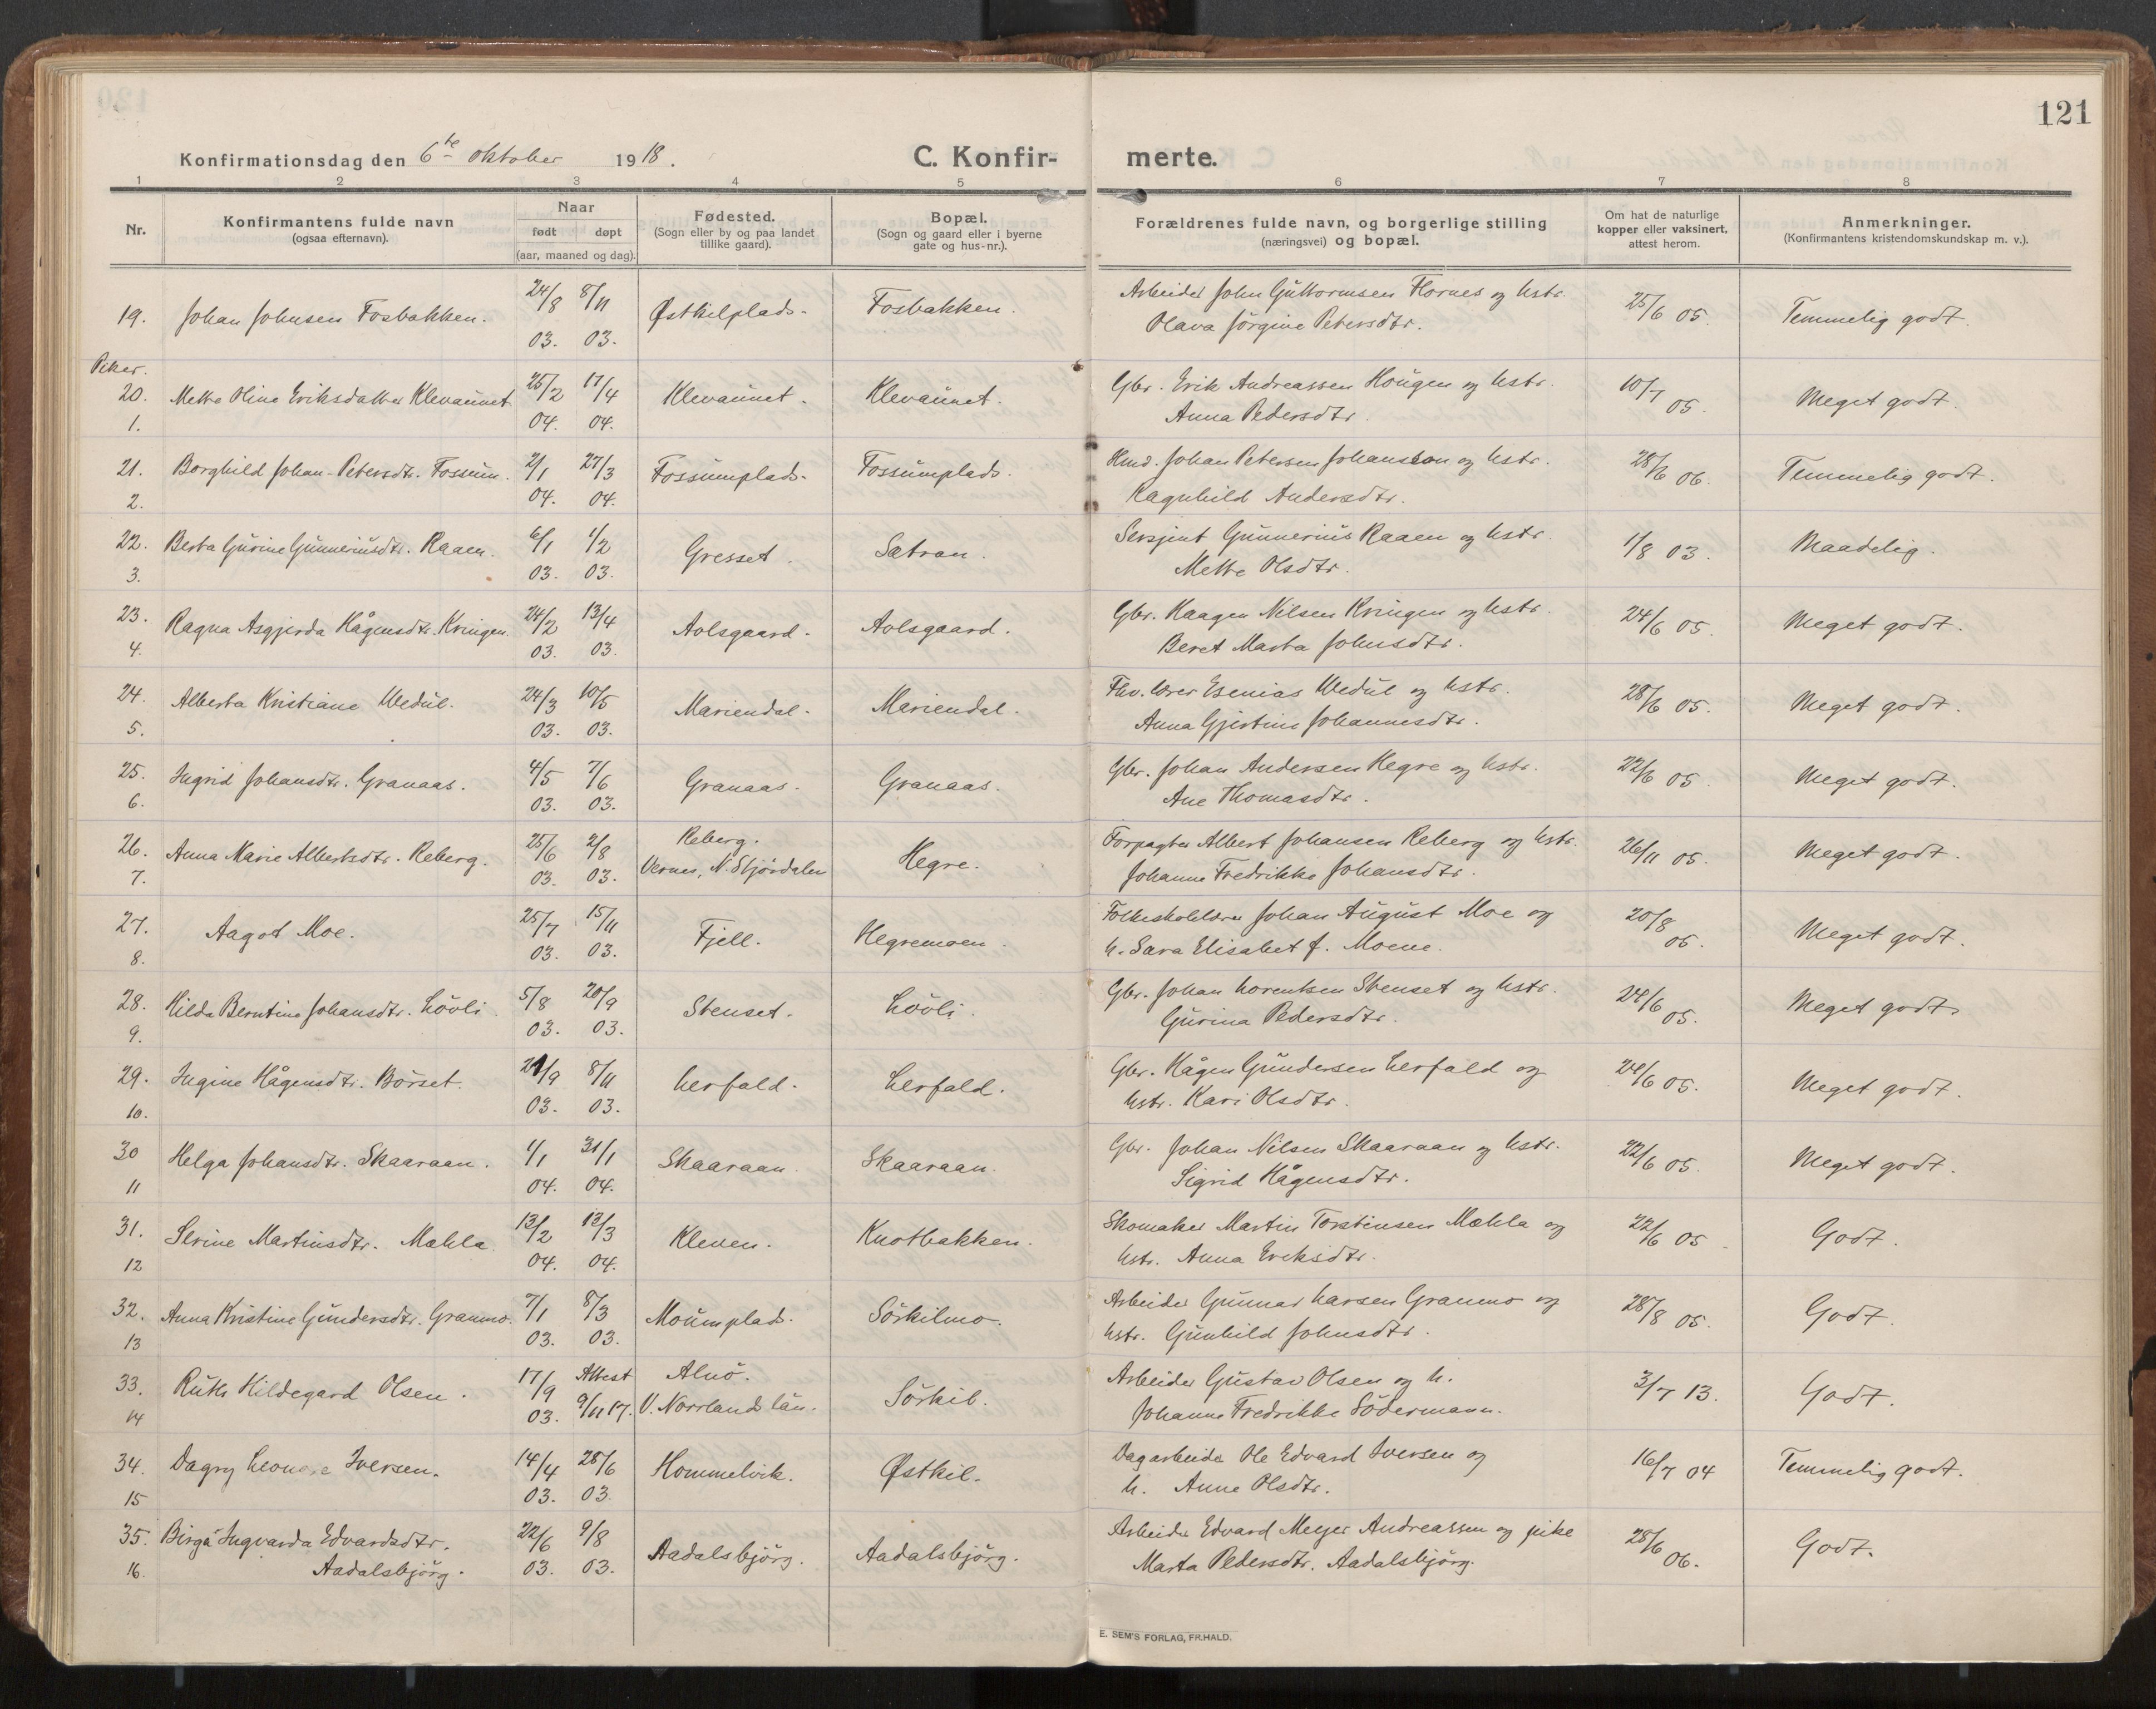 121
Konfirmationsdag den 6te oktober 1918. C. Konfir- merte.
1 2 3 4 5 6 7 8
Nr.
Konfirmantens fulde navn
(ogsaa efternavn).
Naar
født døpt
(aar, maaned og dag).
Fødested.
(Sogn eller by og paa landet
tillike gaard).
Bopæl.
(Sogn og gaard eller i byerne
gate og hus-nr.).
Forældrenes fulde navn, og borgerlige stilling
(næringsvei) og bopæl.
Om hat de naturlige
kopper eller vaksinert,
attest herom.
Anmerkninger.
(Konfirmantens kristendomskundskap m. v.).
19. Johan Johnsen Fosbakken. 24/8 03. 8/11 03. Østkilplads. Fosbakken. Arbeider John Guttormsen Flornes og hstr. 25/6 05. Temmelig godt.
Olava Jørgine Petersdtr.
Piker.
20. Mette Oline Eriksdatter Klevaunet 25/2 04. 17/4 04. Klevaunet. Klevaunet. Gbr. Erik Andreassen Hougen og hstr. 10/7 05. Meget godt.
1. Anna Pedersdtr.
21. Borghild Johan-Petersdtr. Fossum. 2/1 04. 27/3 04. Fossumplads. Fossumplads. Hmd. Johan Petersen Johansson og hstr. 28/6 06. Temmelig godt.
2. Ragnhild Andersdtr.
22. Berta Gurine Gunneriusdtr. Raaen. 6/1 03. 1/2 03. Gresset. Sætran. Sersjent Gunnerius Raaen og hstr. 1/8 03. Maadelig.
3. Mette Olsdtr.
23. Ragna Asgjerda Hågensdtr. Kringen. 24/2 03. 13/4 03. Aolsgaard. Aolsgaard. Gbr. Haagen Nilsen Kringen og hstr. 24/6 05. Meget godt.
4. Beret Marta Johnsdtr.
24. Alberta Kristiane Wedul. 24/3 03. 10/5 03. Mariendal. Mariendal. Fhv. lærer Esenias Wedul og hstr. 28/6 05. Meget godt.
5. Anna Gjertine Johannesdtr.
25. Ingrid Johansdtr. Granaas. 4/5 03. 7/6 03. Granaas. Granaas. Gbr. Johan Andersen Hegre og hstr. 22/6 05. Meget godt.
6. Ane Thomasdtr.
26. Anna Marie Albertsdtr. Reberg. 25/6 03. 2/8 03. Reberg. Hegre. Forpagter Albert Johansen Reberg og hstr. 26/11 05. Meget godt.
7. Vernes, N. Stjørdalen Johanne Fredrikke Johansdtr.
27. Aagot Moe. 25/7 03. 15/11 03. Fjell. Hegremoen. Folkeskolelærer Johan August Moe og 20/8 05. Meget godt.
8. h. Sara Elisabet f. Moene.
28. Hilda Berntine Johansdtr. Lövli. 5/8 03. 20/9 03. Stenset. Lövli. Gbr. Johan Lorentsen Stenset og hstr. 24/6 05. Meget godt
9. Gurina Pedersdtr.
29. Ingine Hågensdtr. Börset. 21/9 03. 8/11 03. Lerfald. Lerfald. Gbr. Hågen Gundersen Lerfald og 24/6 05. Meget godt.
10. hstr. Kari Olsdtr.
30 Helga Johansdtr. Skaaraan. 1/1 04. 31/1 04. Skaaraan. Skaaraan. Gbr. Johan Nilsen Skaaraan og hstr. 22/6 05. Meget godt.
11 Sigrid Hågensdtr.
31. Serine Martinsdtr. Mæhla. 13/2 04. 13/3 04. Kleven. Knotbakken. Skomaker Martin Torstensen Mæhla og 22/6 05 Godt.
12 hstr. Anna Eriksdtr.
32. Anna Kristine Gundersdtr. Granmo. 7/1 03. 8/3 03. Moumplads. Sörkilmo. Arbeider Gunnar Larsen Granmo og 28/8 05. Godt.
13 hstr. Gunhild Johnsdtr.
33. Ruth Hildegard Olsen. 17/9 03. Attest 9/11 17. Alnö. Sörkil. Arbeider Gustav Olsen og h. 3/7 13. Godt.
14 V. Norrlands län. Johanne Fredrikke Södermann.
34. Dagny Leonore Iversen. 14/4 03. 28/6 03. Hommelvik. Østkil. Dagarbeider Ole Edvard Iversen og 16/7 04 Temmelig godt.
15 h. Anne Olsdtr.
35. Birga Ingvarda Edvardsdtr. 22/6 03. 9/8 03. Aadalsbjörg. Aadalsbjörg. Arbeider Edvard Meyer Andreassen og pike 28/6 06. Godt.
16. Aadalsbjörg. Marta Pedersdtr. Aadalsbjörg.
E. SEM'S FORLAG, FR.HALD.